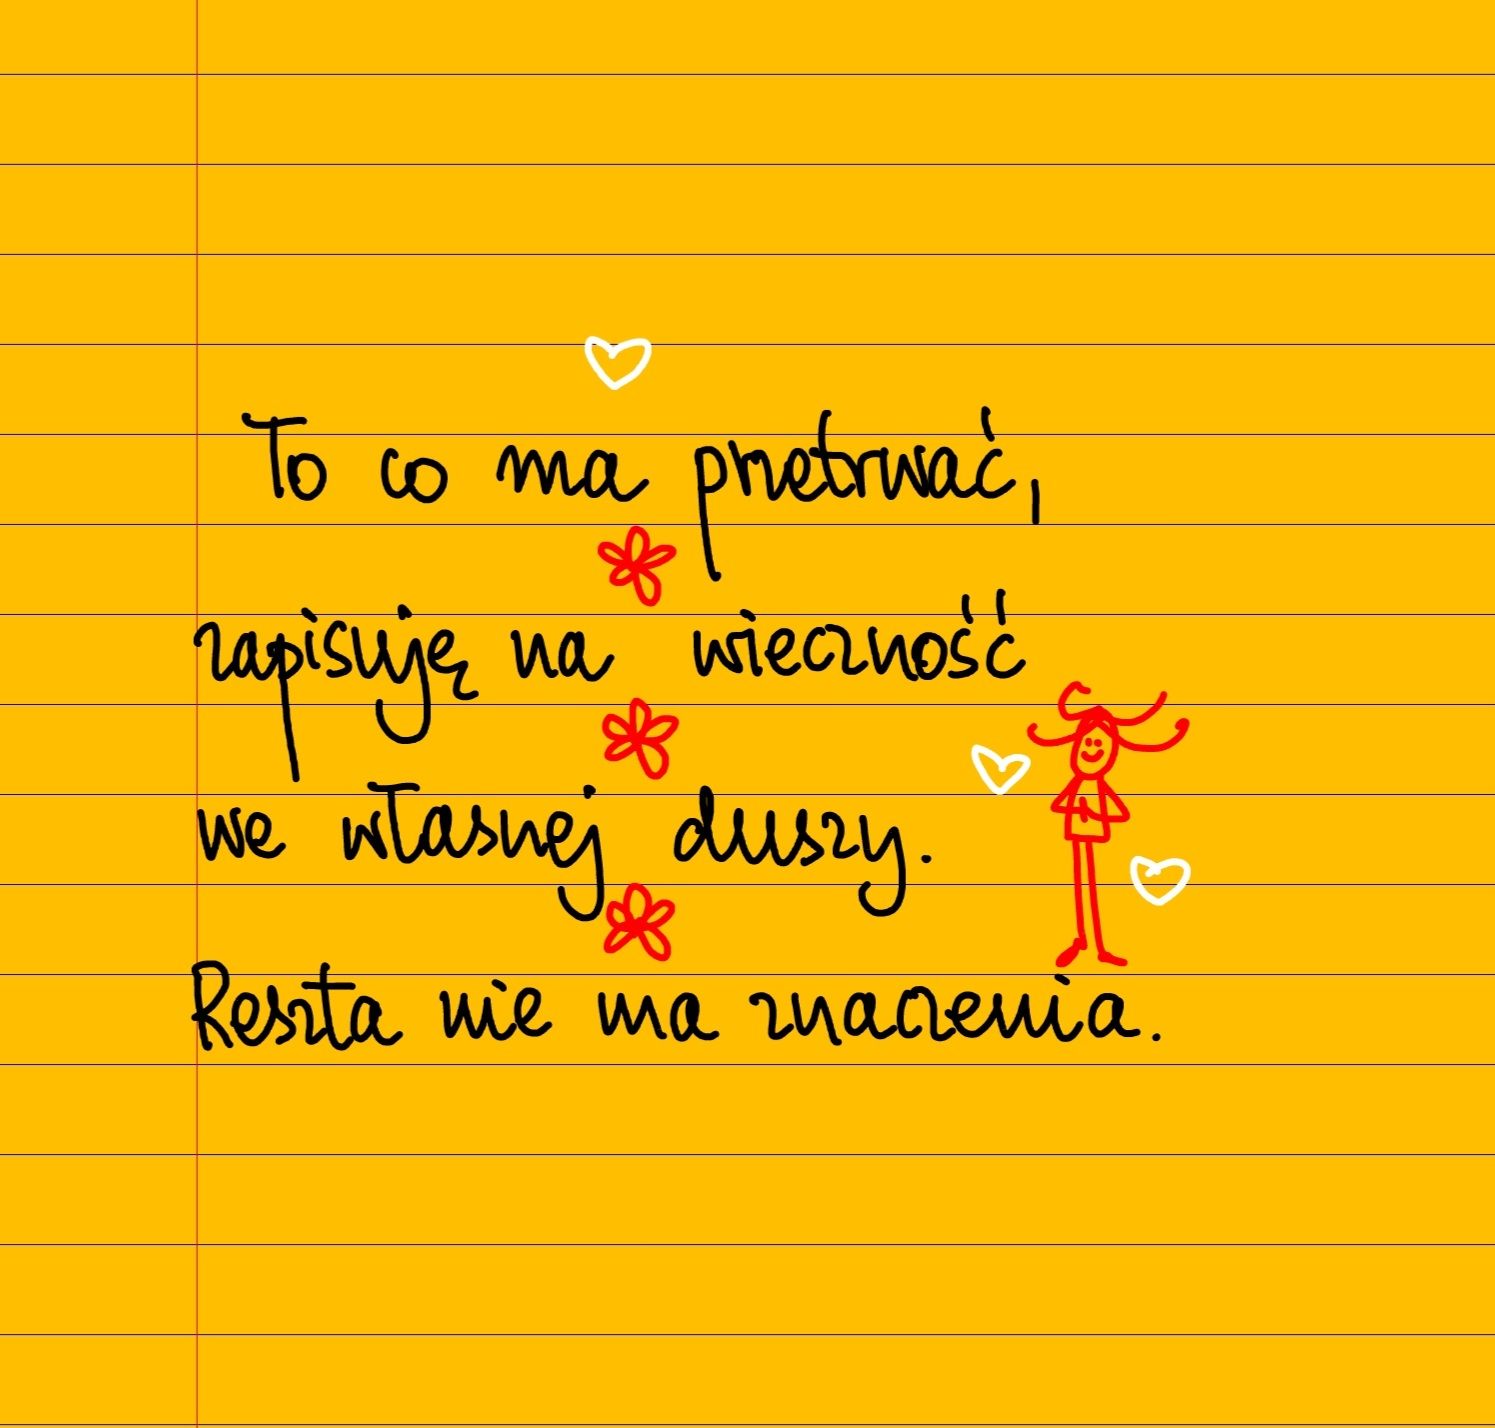 To co ma przetrwać,
zapisuję na wieczność
we własnej duszy.
Reszta nie ma znaczenia.